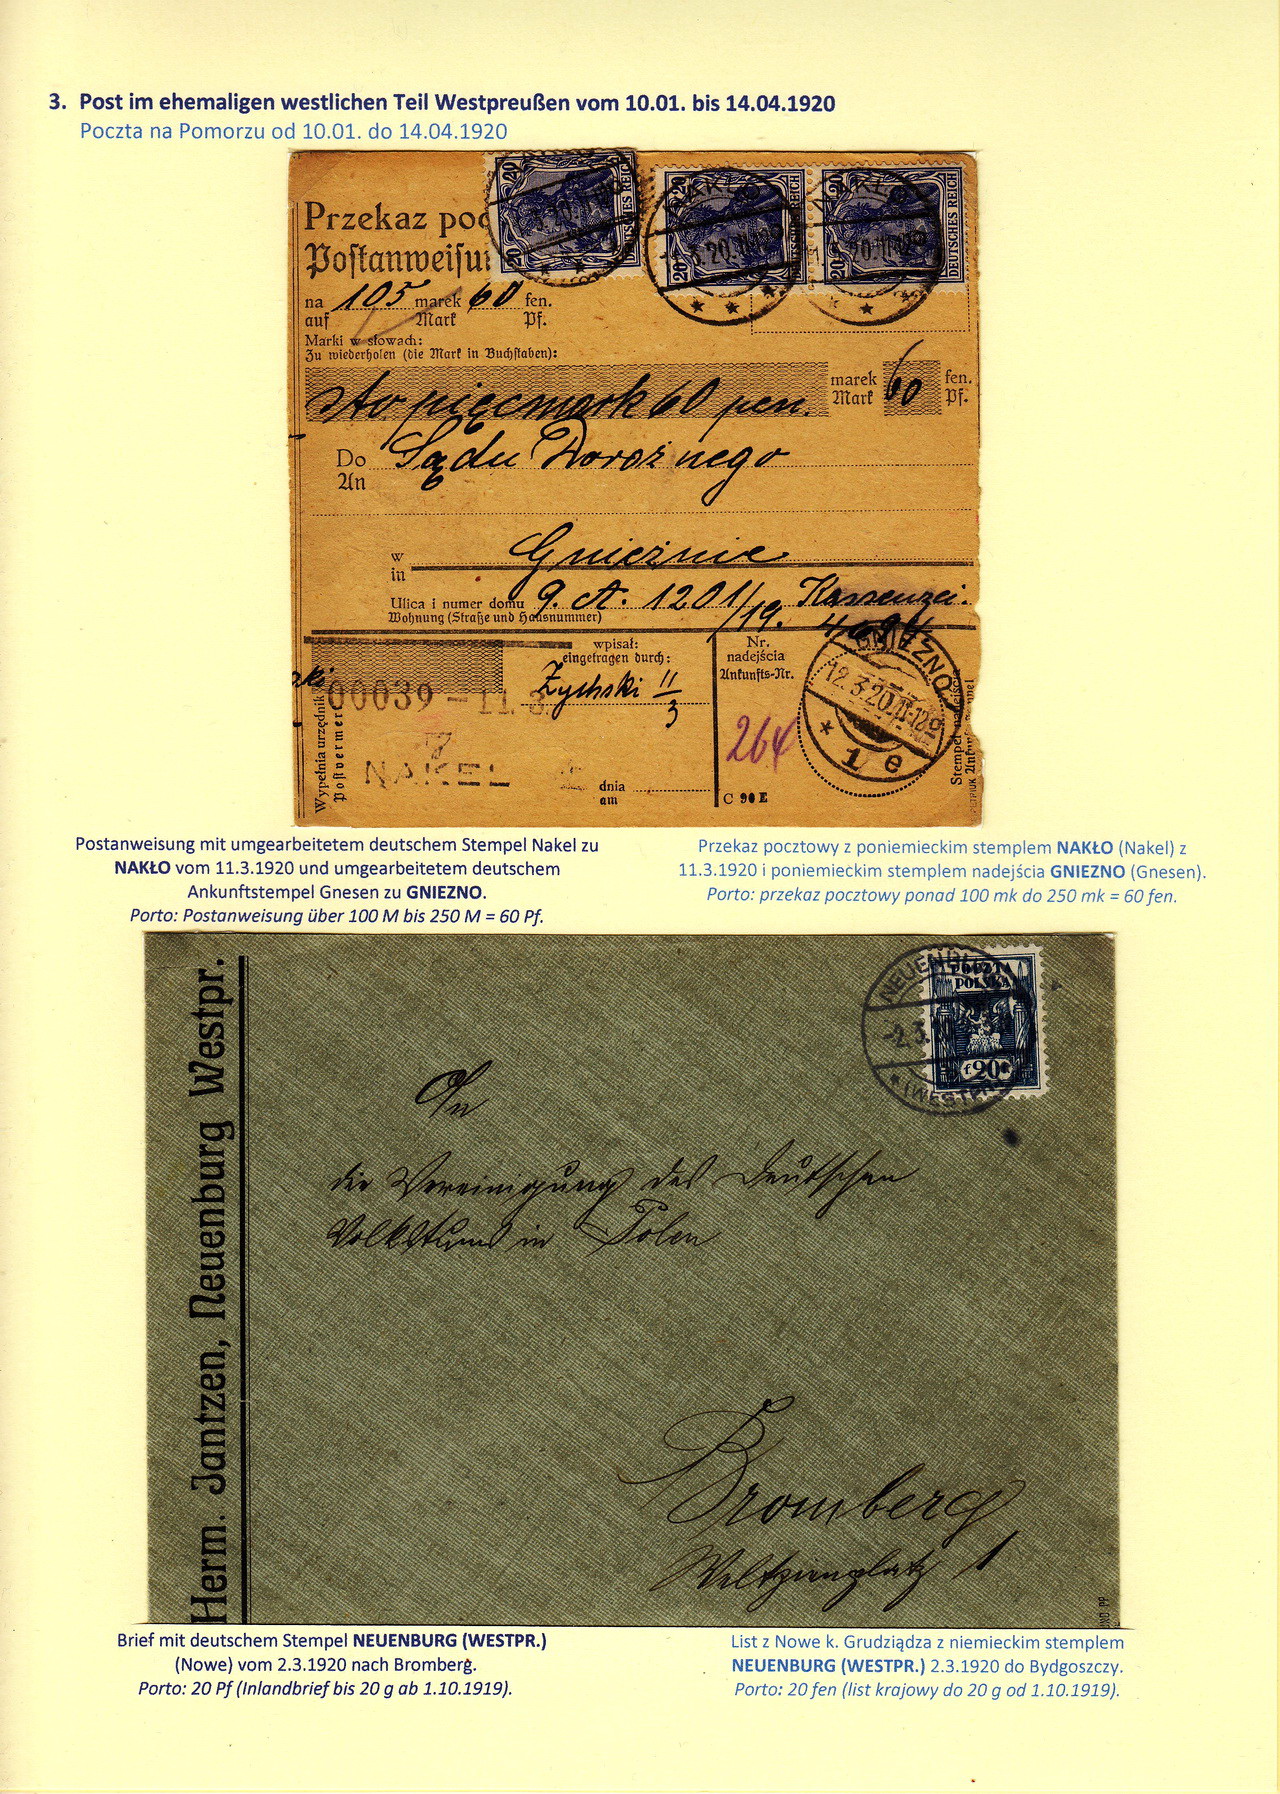 3. Post im ehemaligen westlichen Teil Westpreußen vom 10.01. bis 14.04.1920
Poczta na Pomorzu od 10.01. do 14.04.1920
20 20 DEUTSCHES REICH
20 20 DEUTSCHES REICH
20 20 DEUTSCHES REICH
NAKŁO
NAKŁO
Przekaz poc
Postanweisu
na 105 marek 60 fen.
auf Mark Pf.
Marki w słowach:
Zu wiederholen (die Mark in Buchstaben):
sto pięcmark 60 pen. marek 60 fen.
Mark Pf.
Do Sądu Doroźnego
An
w Gnieźnie
in
Ulica i numer domu 9. A. 1201/19. Kassenzei.
Wohnung (Straße und Hausnummer)
wpisał:
eingetragen durch:
Nr.
nadejścia
Ankunfts-Nr.
Zychski 11/3
00039 – 11. 3.
7
NAKEL
Wypełnia urzędnik
Postvermer
dnia
am
264
C 90 E
GNIEZNO
12.3.20.11-12
* 1 e
Stempel nadejścia
Postanweisung mit umgearbeitetem deutschem Stempel Nakel zu
NAKŁO vom 11.3.1920 und umgearbeitetem deutschem
Ankunftstempel Gnesen zu GNIEZNO.
Porto: Postanweisung über 100 M bis 250 M = 60 Pf.
Przekaz pocztowy z poniemieckim stemplem NAKŁO (Nakel) z
11.3.1920 i poniemieckim stemplem nadejścia GNIEZNO (Gnesen).
Porto: przekaz pocztowy ponad 100 mk do 250 mk = 60 fen.
Herm. Jantzen, Neuenburg Westpr.
NEUENBU
-2.3.
* (WESTPR
POCZTA
POLSKA
f. 20 f.
An
die Vereinigung des Deutschen
Volkstums in Polen
Bromberg
Weltzienplatz 1
Brief mit deutschem Stempel NEUENBURG (WESTPR.)
(Nowe) vom 2.3.1920 nach Bromberg.
Porto: 20 Pf (Inlandbrief bis 20 g ab 1.10.1919).
List z Nowe k. Grudziądza z niemieckim stemplem
NEUENBURG (WESTPR.) 2.3.1920 do Bydgoszczy.
Porto: 20 fen (list krajowy do 20 g od 1.10.1919).